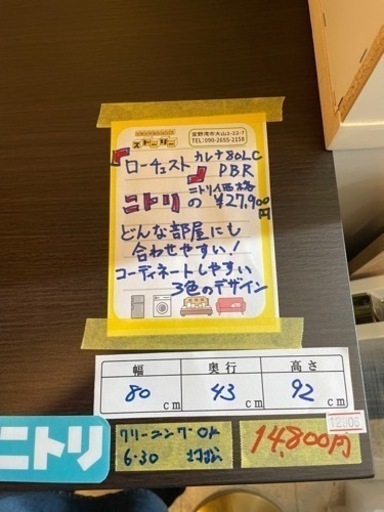 ストーリー
宜野湾市大山2-22-7
TEL:090-2655-2158
ローチェスト カレナ80LC
PBR
ニトリ の ニトリ価格 ¥27,900円
どんな部屋にも
合わせやすい!
コーディネートしやすい
3色のデザイン
幅 奥行 高さ
80cm 43cm 92cm
12906
ニトリ
クリーニングOK
6.30
14,800円